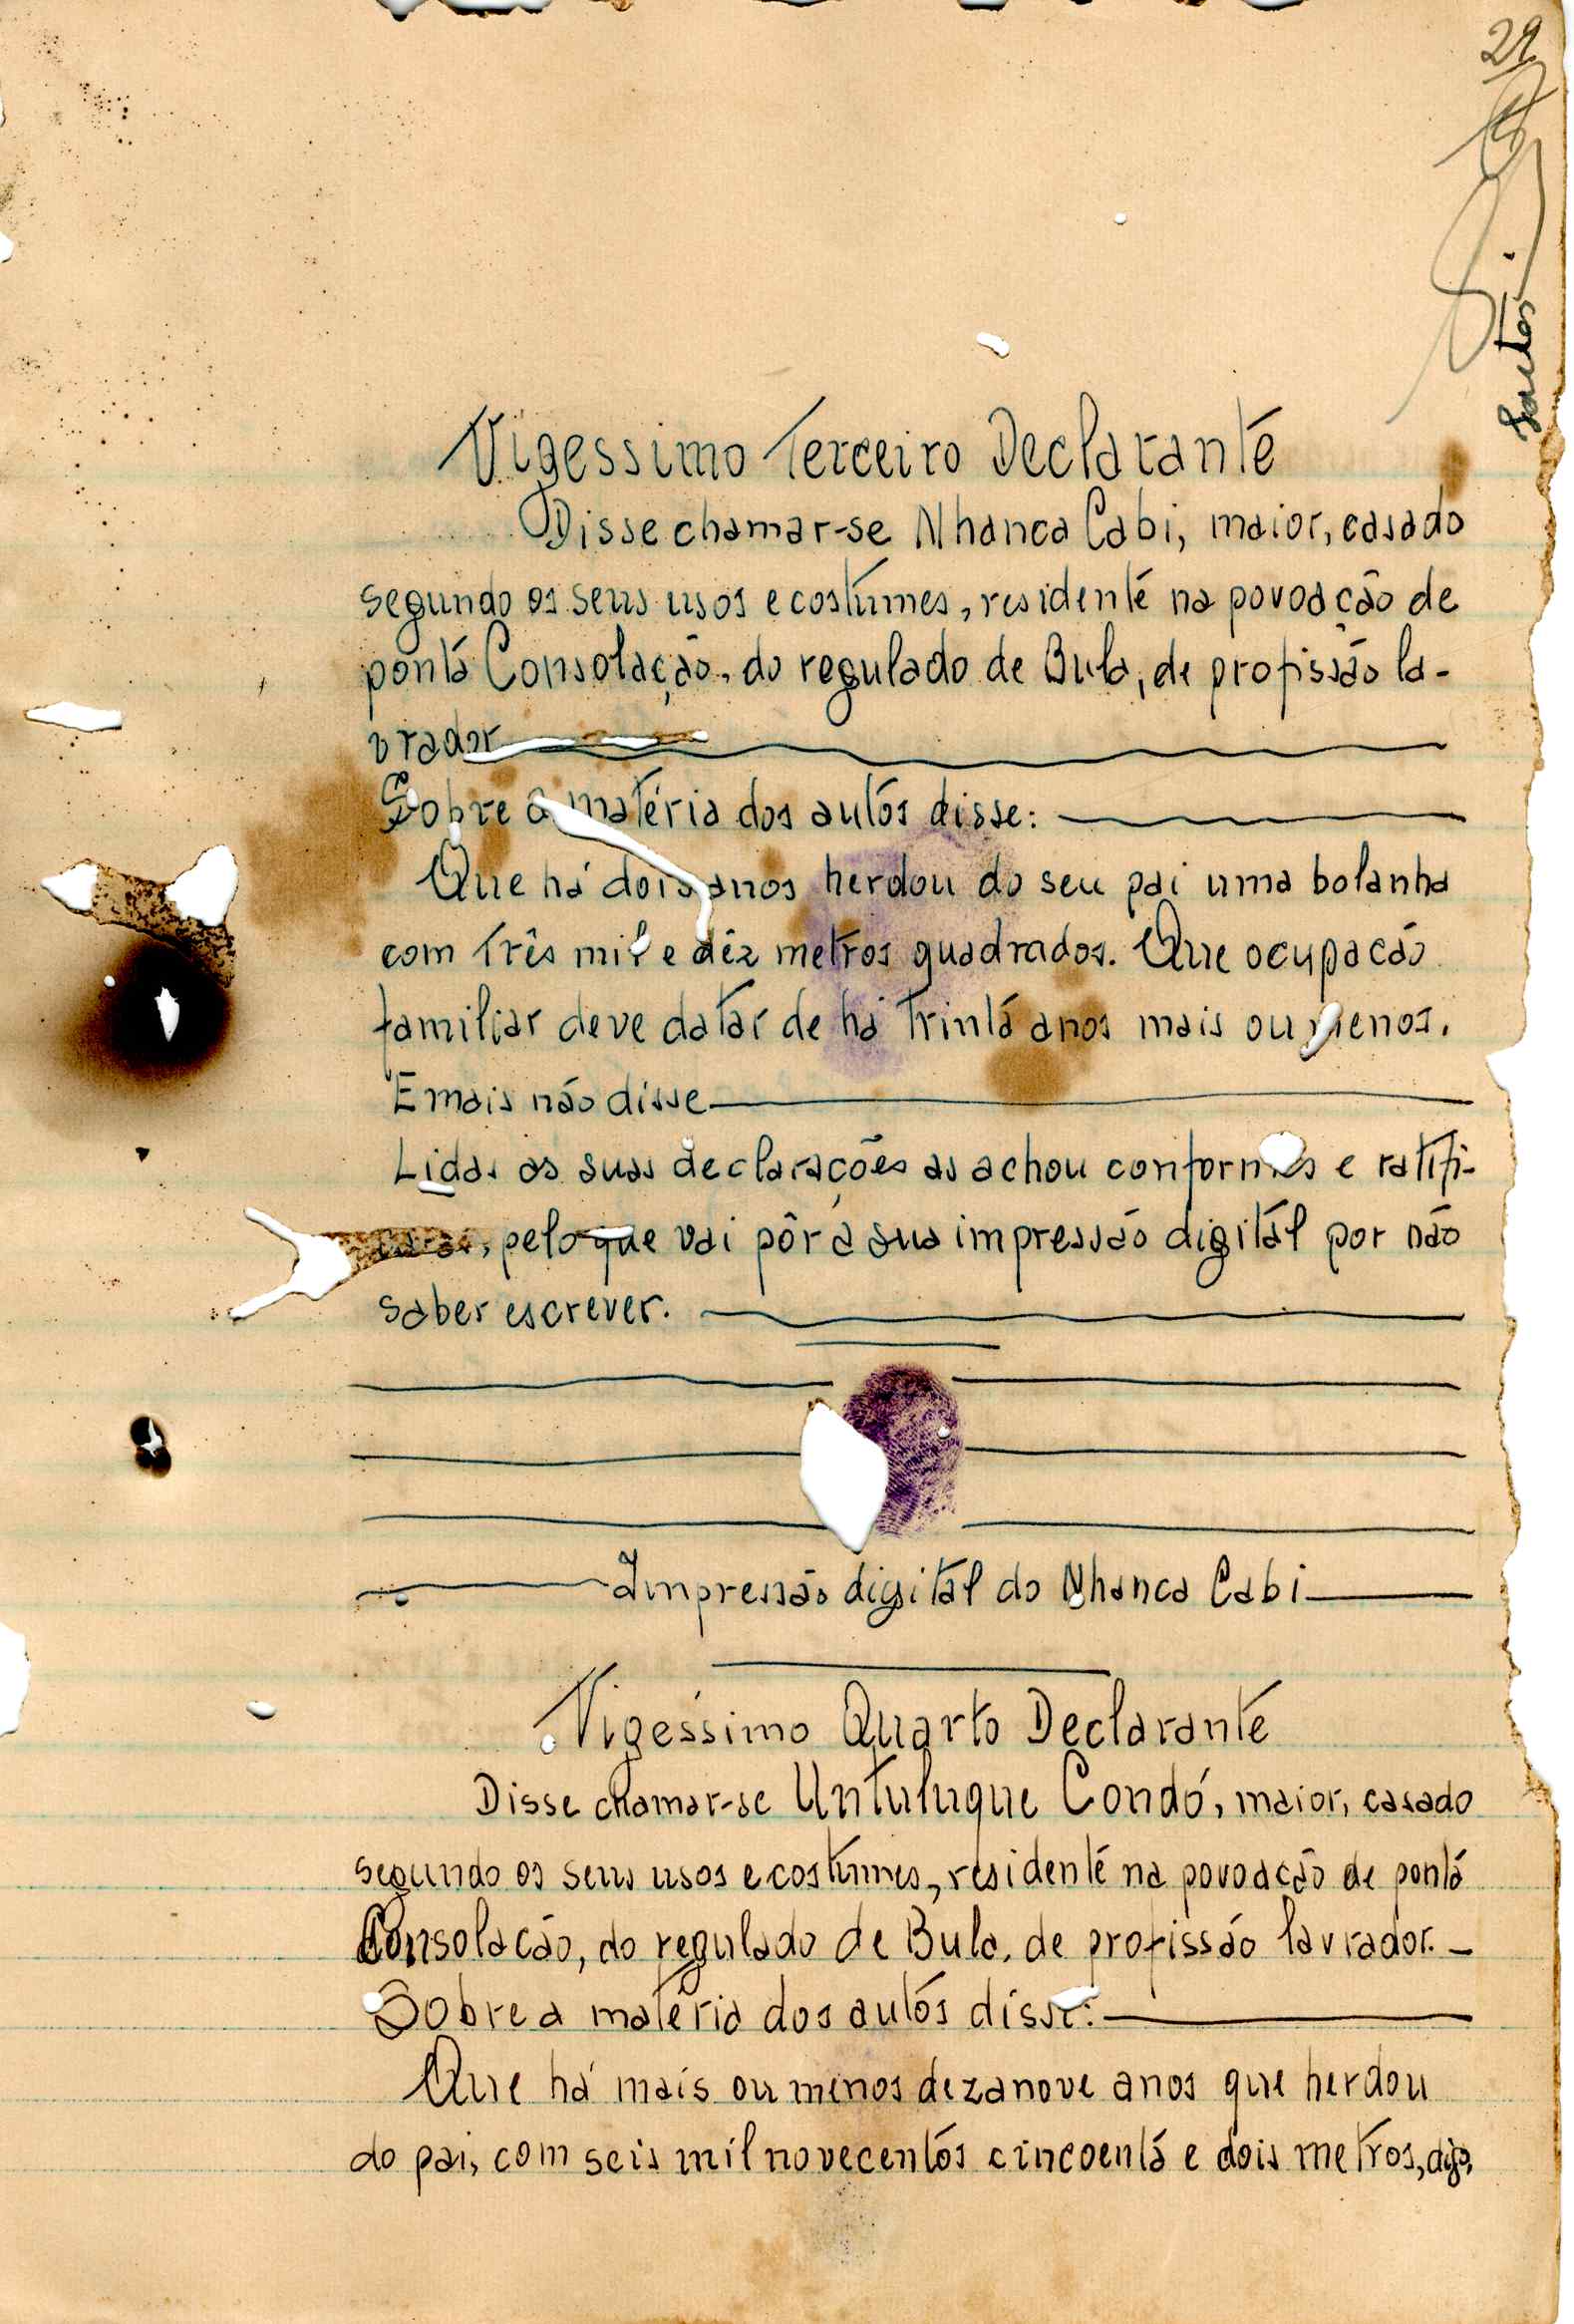 29
Santos
Vigessimo Terceiro Declarante
Disse chamar-se Nhanca Cabi, maior, casado
segundo os seus usos e costumes, residente na povoação de
ponta Consolação, do regulado de Bula, de profissão la-
vrador
Sobre a matéria dos autos disse:
Que há dois anos herdou do seu pai uma bolanha
com três mil e dêz metros quadrados. Que ocupacão
familiar deve datar de há trinta anos mais ou menos.
E mais não disse
Lidas as suas declarações as achou conformes e ratifi-
, pelo que vai pôr a sua impressão digital por não
saber escrever.
Impressão digital do Nhanca Cabi
Vigessimo Quarto Declarante
Disse chamar-se Untuluque Condó, maior, casado
segundo os seus usos e costumes, residente na povoação de ponta
Consolacão, do regulado de Bula, de profissão lavrador. -
Sobre a matéria dos autos disse:
Que há mais ou menos dezanove anos que herdou
do pai, com seis mil novecentos cincoenta e dois metros, digo,